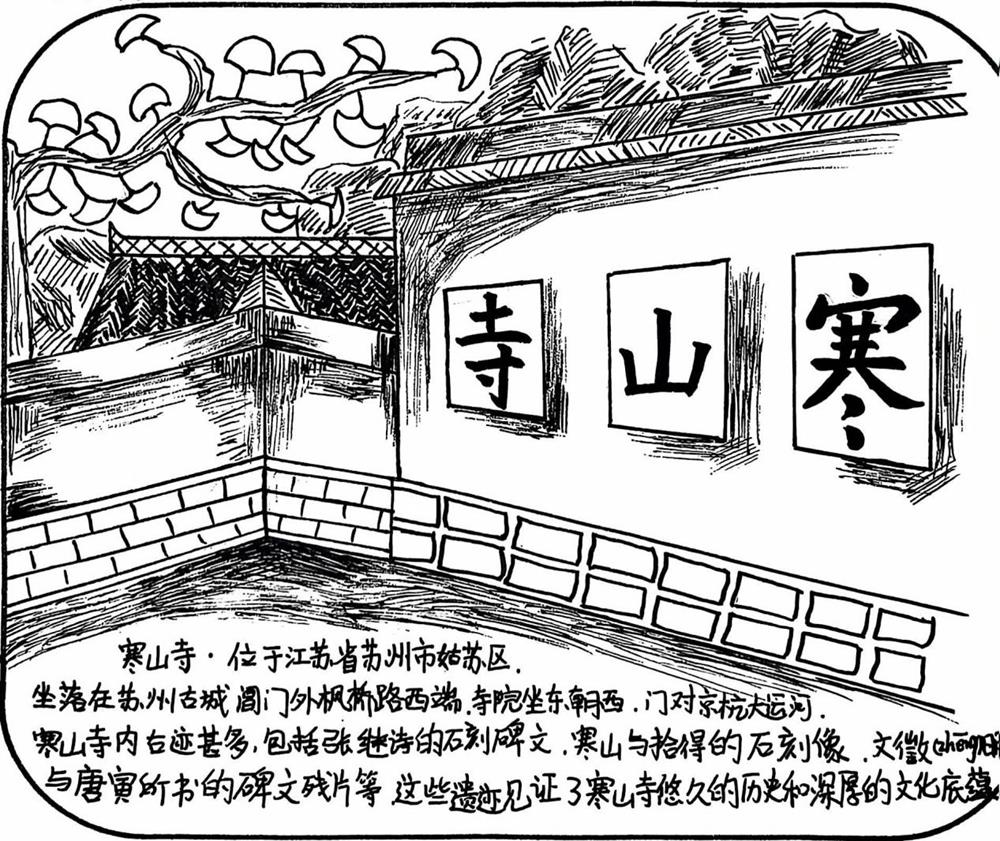 寒山寺
寒山寺·位于江苏省苏州市姑苏区.
坐落在苏州古城阊门外枫桥路西端.寺院坐东朝西.门对京杭大运河.
寒山寺内古迹甚多,包括张继诗的石刻碑文.寒山与拾得的石刻像.文徵(zhēng)明
与唐寅所书的碑文残片等 这些遗迹见证了寒山寺悠久的历史和深厚的文化底蕴